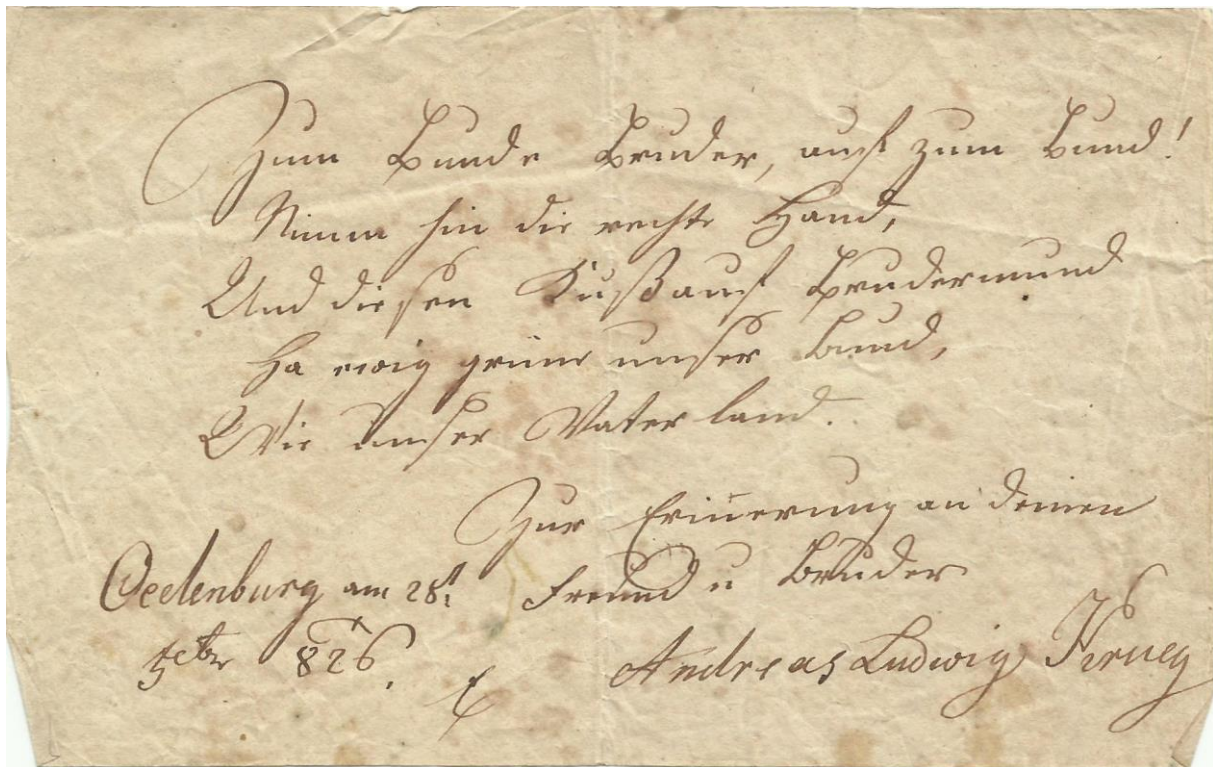 Zum Bunde Bruder, auf zum Bund!
Nimm hin die rechte Hand,
Und diesen Kuß auf Brudermund
Ha ewig grüne unser Bund,
Wie unser Vaterland.
Zur Erinnerung an deinen
Oedenburg am 28t. Freund u Bruder
826. Andreas Ludwig